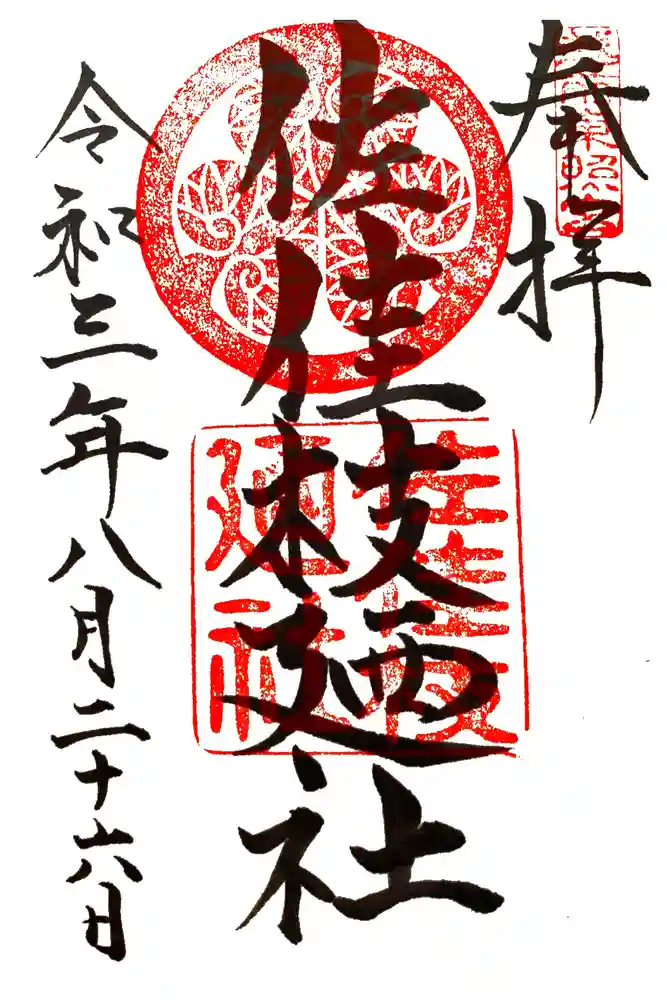 奉拝
佐佳枝廼社
佐佳枝
廼社
令和三年八月二十六日